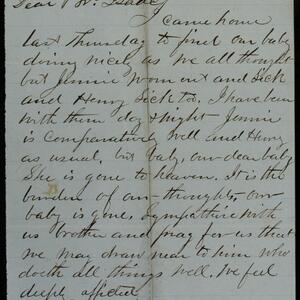 Dear Bro. Isaac,
I came home
last Thursday to find our baby
doing nicely as we all thought
but Jennie worn out and Sick
and Henry Sick too. I have been
with them day & night Jennie
is comparatively well and Henry
as usual, but baby, our dear baby
She is gone to heaven. It is the
burden of our thoughts, our
baby is gone. Sympathise with
us brother and pray for us that
we may draw near to him who
doeth all things well. We feel
deeply afflicted